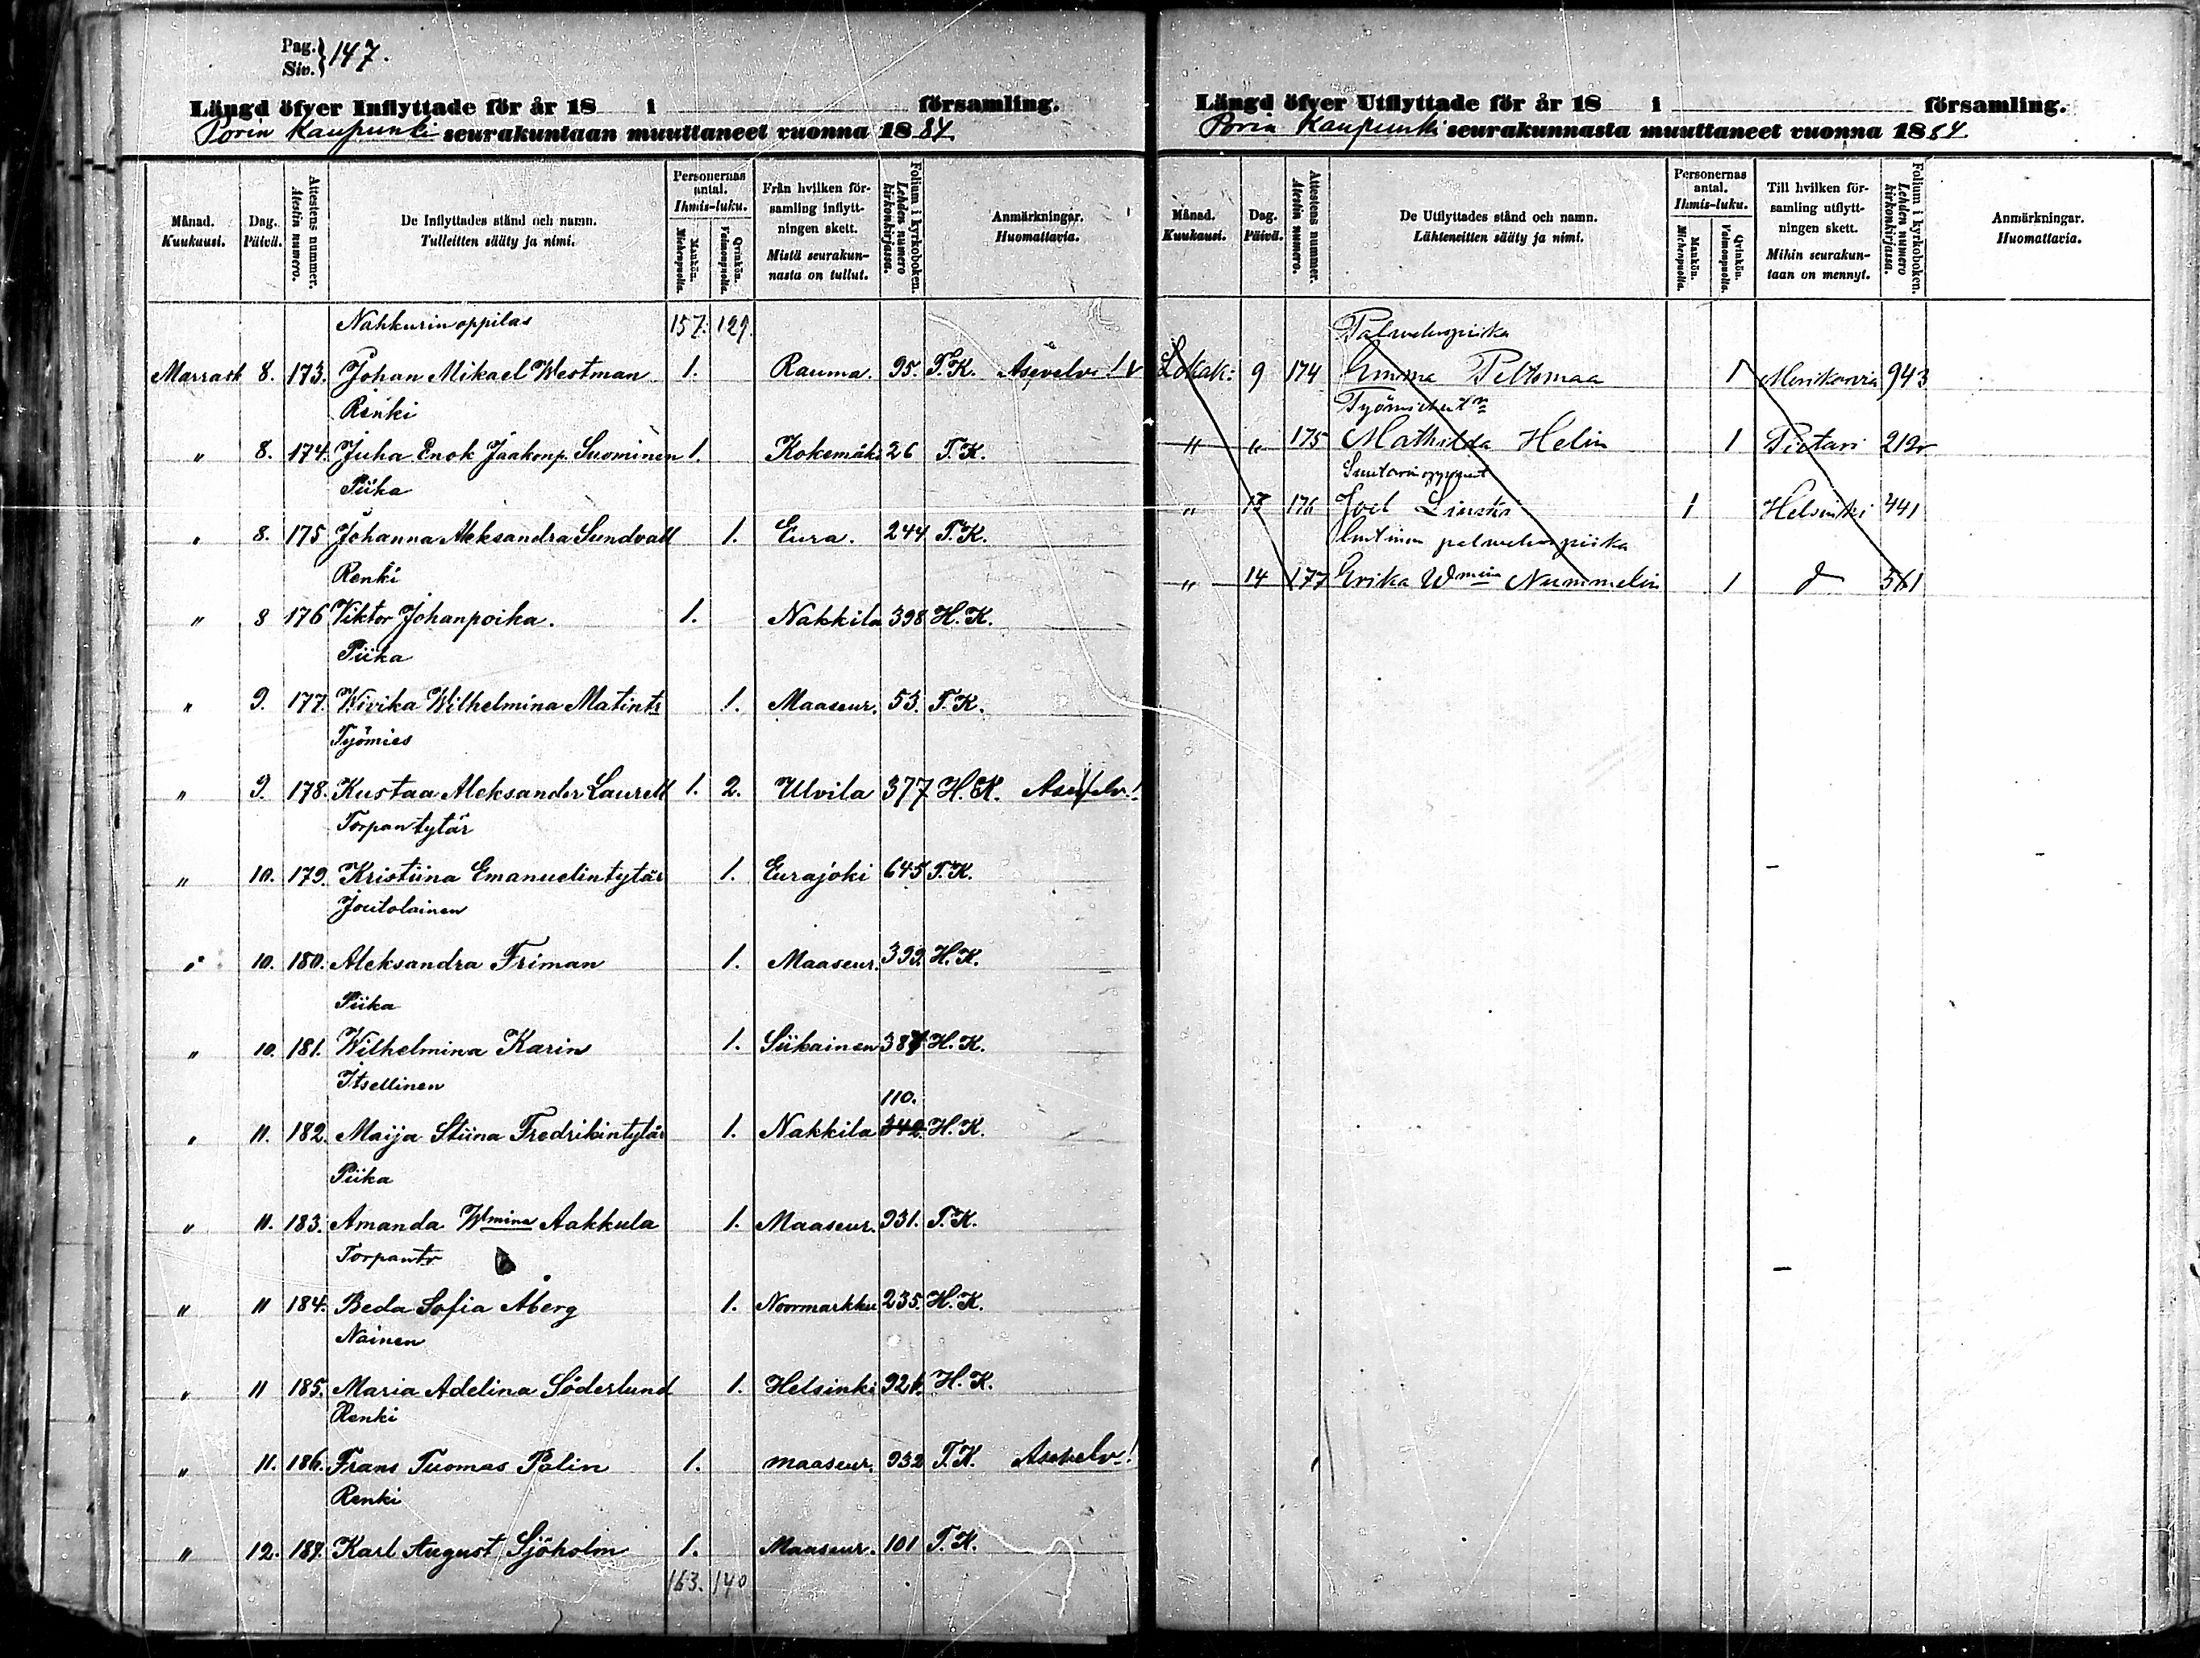 Pag. Siv. } 147.
Längd öfver Inflyttade för år 18 i församling.
Porin Kaupunki seurakuntaan muuttaneet vuonna 1884
Månad. Kuukausi.
Dag. Päivä.
Attestens nummer. Atestin numero.
De Inflyttades stånd och namn. Tulleitten sääty ja nimi.
Personernas antal. Ihmis-luku.
Mankön. Miehenpuolia.
Qvinkön. Vaimonpuolia.
Från hvilken församling inflyttningen skett. Mistä seurakunnasta on tullut.
Folium i kyrkoboken. Lehden numero kirkonkirjassa.
Anmärkningar. Huomattavia.
Nahkurinoppilas 157. 129.
Marrask 8. 173. Johan Mikael Westman 1. Rauma. 95. T.K. Asevelv.!
Renki
" 8. 174. Juha Enok Jaakonp. Suominen 1. Kokemäki 26 T.K.
Piika
" 8. 175 Johanna Aleksandra Sundvall 1. Eura. 244 T.K.
Renki
" 8 176 Viktor Johanpoika. 1. Nakkila 398 H.K.
Piika
" 9. 177. Wivika Wilhelmina Matintr 1. Maaseur. 53. T.K.
Työmies
" 9. 178. Kustaa Aleksander Laurell 1. 2. Ulvila 377 H.K. Asevelv.!
Torpantytär
" 10. 179. Kristiina Emanuelintytär 1. Eurajoki 645 T.K.
Joutolainen
" 10. 180. Aleksandra Friman 1. Maaseur. 399. H.K.
Piika
" 10. 181. Wilhelmina Karin 1. Siikainen 387 H.K.
Itsellinen
110.
" 11. 182. Maija Stiina Fredrikintytär 1. Nakkila 342. H.K.
Piika
" 11. 183. Amanda Wmina Aakkula 1. Maaseur. 931. T.K.
Torpantr
" 11 184. Beda Sofia Åberg 1. Noormarkku 235. H.K.
Nainen
" 11 185. Maria Adelina Söderlund 1. Helsinki H.K.
Renki
" 11. 186. Frans Tuomas Palin 1. maaseur. 932 T.K. Asevelv!
Renki
" 12. 187. Karl August Sjöholm 1. Maaseur. 101 T.K.
163. 140
Längd öfver Utflyttade för år 18 i församling.
Porin Kaupunki seurakunnasta muuttaneet vuonna 1884
Månad. Kuukausi.
Dag. Päivä.
Attestens nummer. Atestin numero.
De Utflyttades stånd och namn. Lähteneitten sääty ja nimi.
Personernas antal. Ihmis-luku.
Mankön. Miehenpuolia.
Qvinkön. Vaimonpuolia.
Till hvilken församling utflyttningen skett. Mihin seurakuntaan on mennyt.
Folium i kyrkoboken. Lehden numero kirkonkirjassa.
Anmärkningar. Huomattavia.
Palveluspiika
Lokak: 9 174 Emma Peltomaa 1 Merikarvia 943
" " 175 Mathilda Helin 1 Pietari 212
" 13 176 Joel 1 Helsinki 441
palveluspiika
" 14 177 Erika Wmina Nummelin 1 561